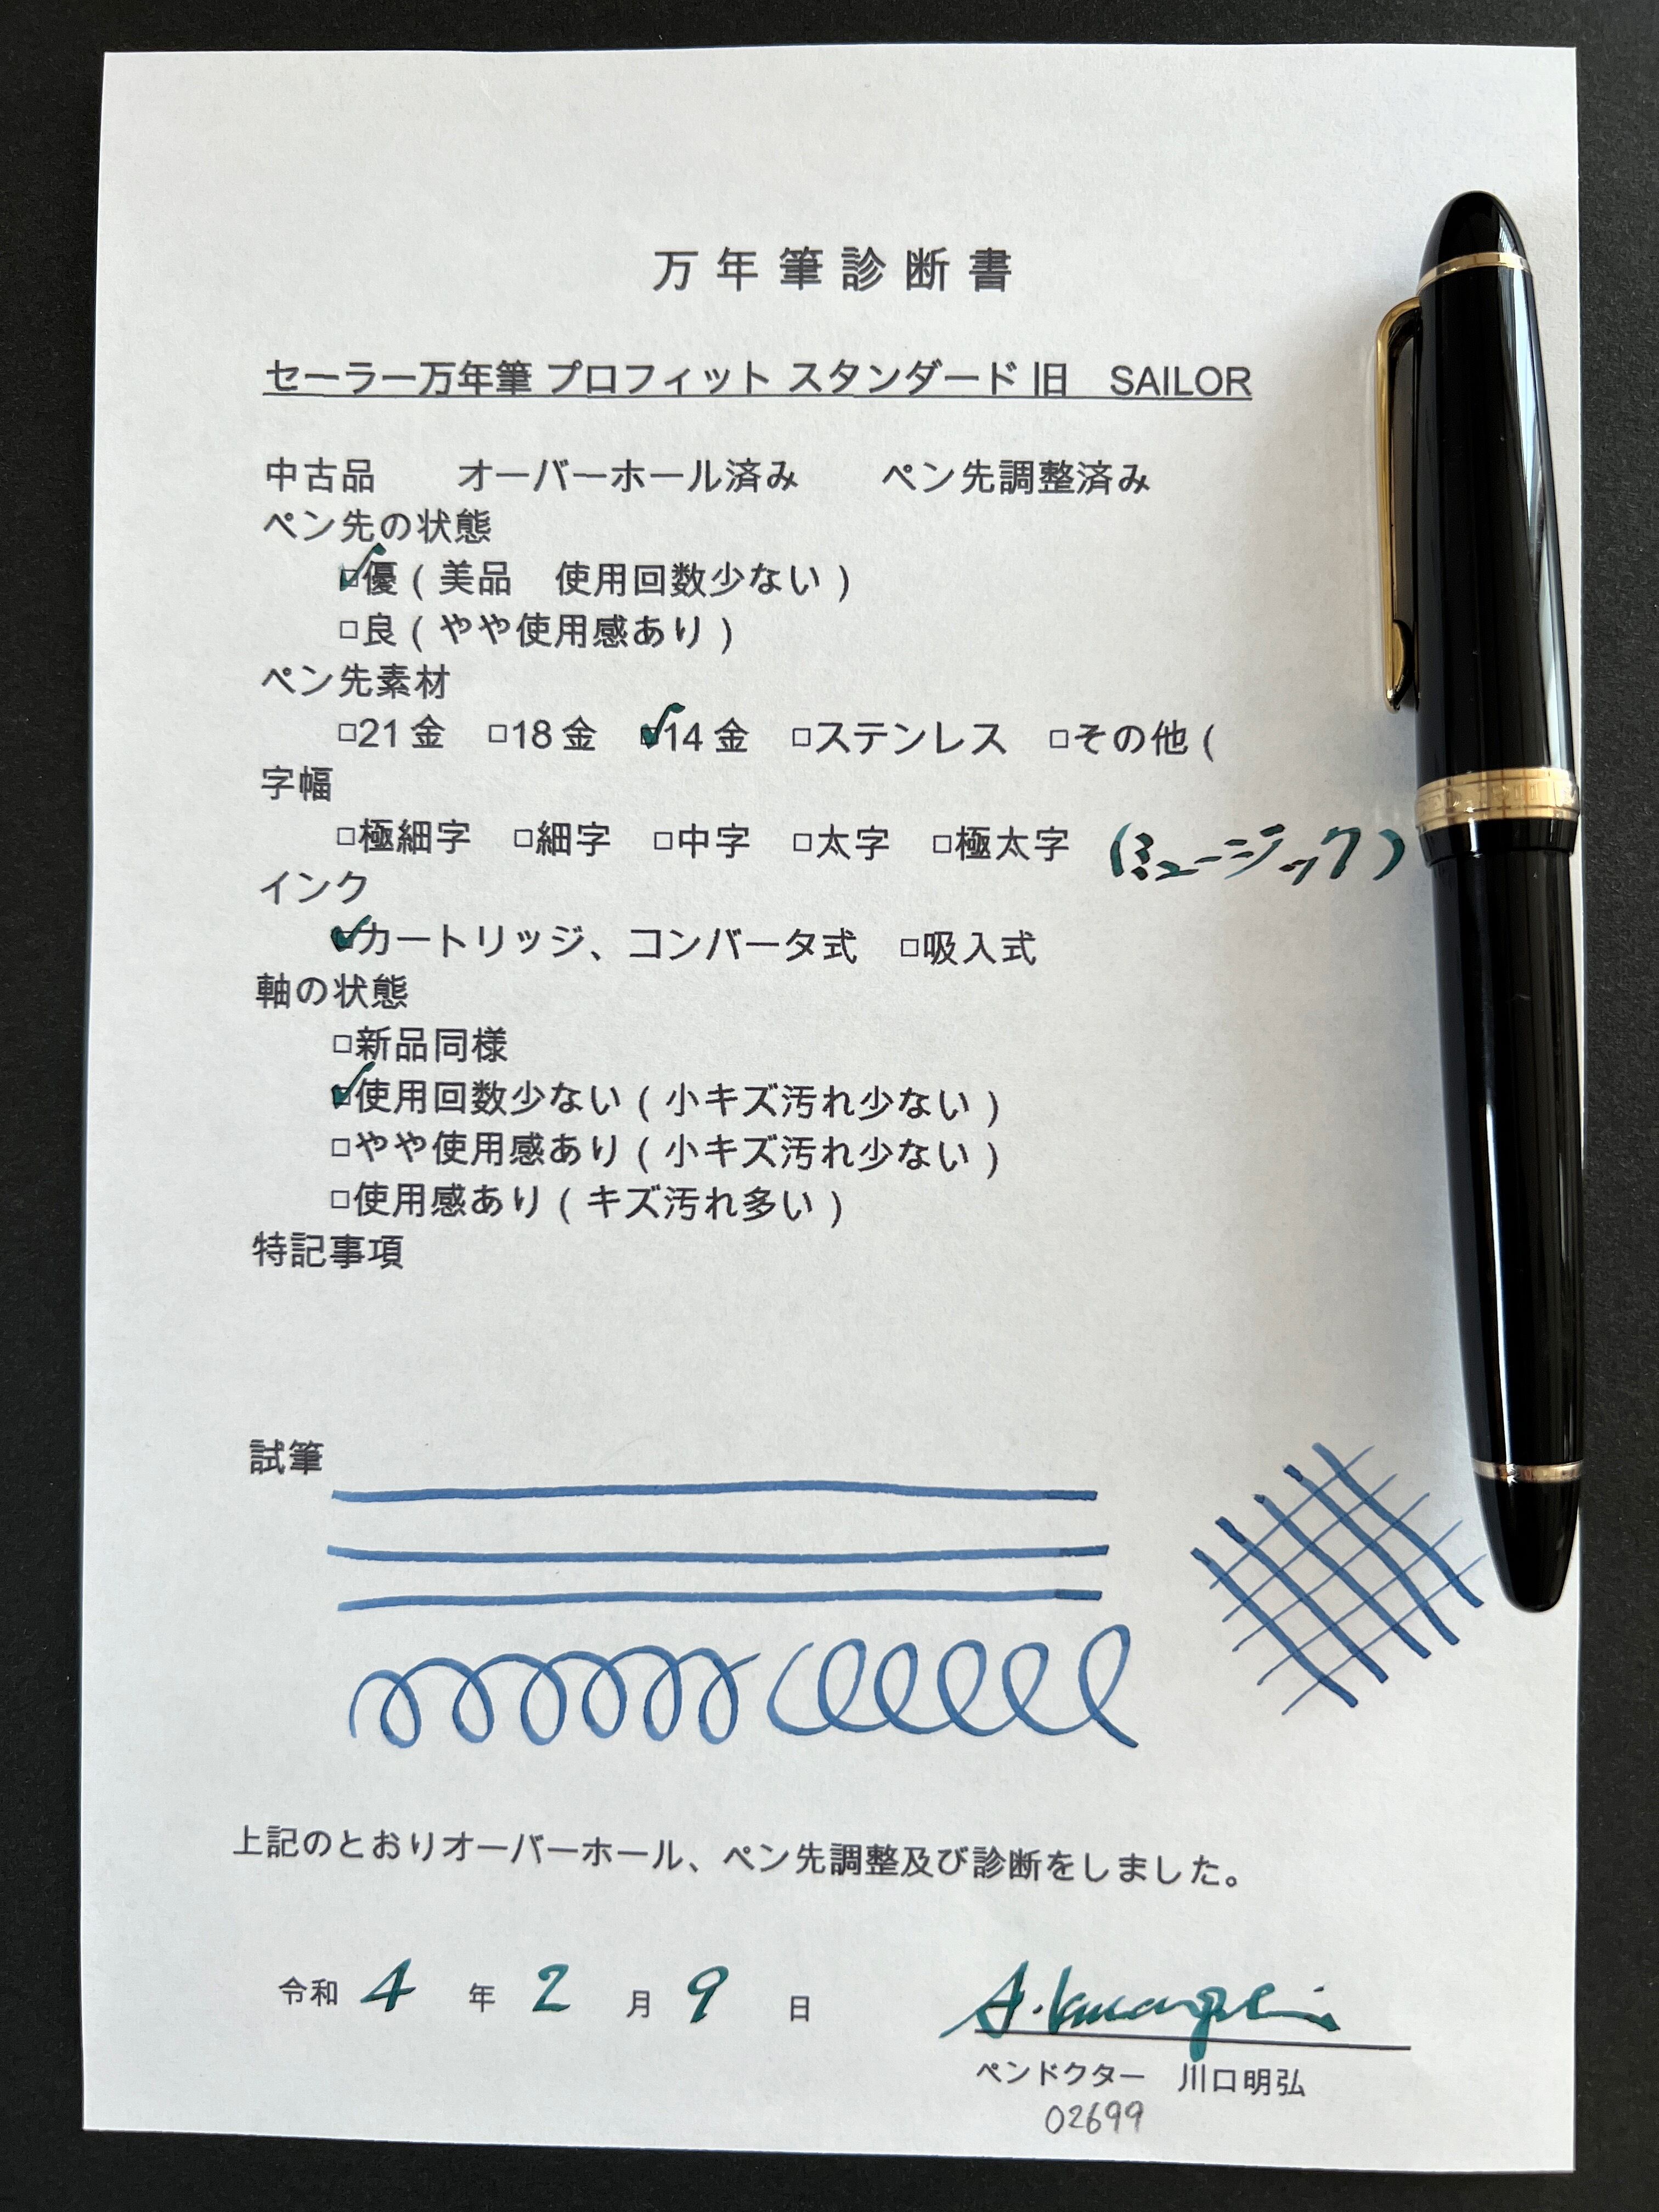 万年筆診断書
セーラー万年筆 プロフィット スタンダード 旧　SAILOR
中古品　オーバーホール済み　ペン先調整済み
ペン先の状態
☑優（美品　使用回数少ない）
□良（やや使用感あり）
ペン先素材
□21金　□18金　☑14金　□ステンレス　□その他（
字幅
□極細字　□細字　□中字　□太字　□極太字　（ミュージック）
インク
☑カートリッジ、コンバータ式　□吸入式
軸の状態
□新品同様
☑使用回数少ない（小キズ汚れ少ない）
□やや使用感あり（小キズ汚れ少ない）
□使用感あり（キズ汚れ多い）
特記事項
試筆
上記のとおりオーバーホール、ペン先調整及び診断をしました。
令和 4 年 2 月 9 日
A. Kawaguchi
ペンドクター　川口明弘
02699